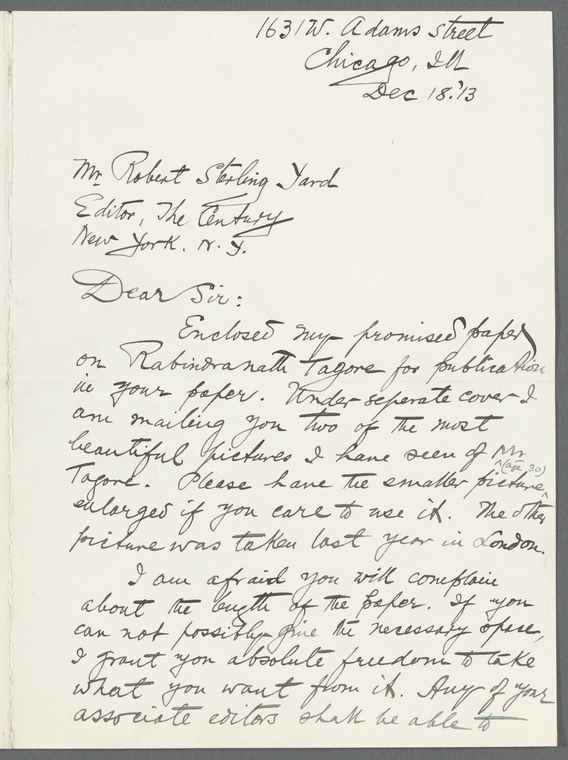 1631 W. Adams Street
Chicago, Ill
Dec 18.'13
Mr. Robert Sterling Yard
Editor, The Century
New York. N. Y.
Dear Sir:
Enclosed my promised paper
on Rabindranath Tagore for publication
in your paper. Under seperate cover I
am mailing you two of the most
beautiful pictures I have seen of Mr
(age 30)
Tagore. Please have the smaller picture
enlarged if you care to use it. The other
picture was taken last year in London.
I am afraid you will complain
about the length of the paper. If you
can not possibly give the necessary space,
I grant you absolute freedom to take
what you want from it. Any of your
associate editors shall be able to